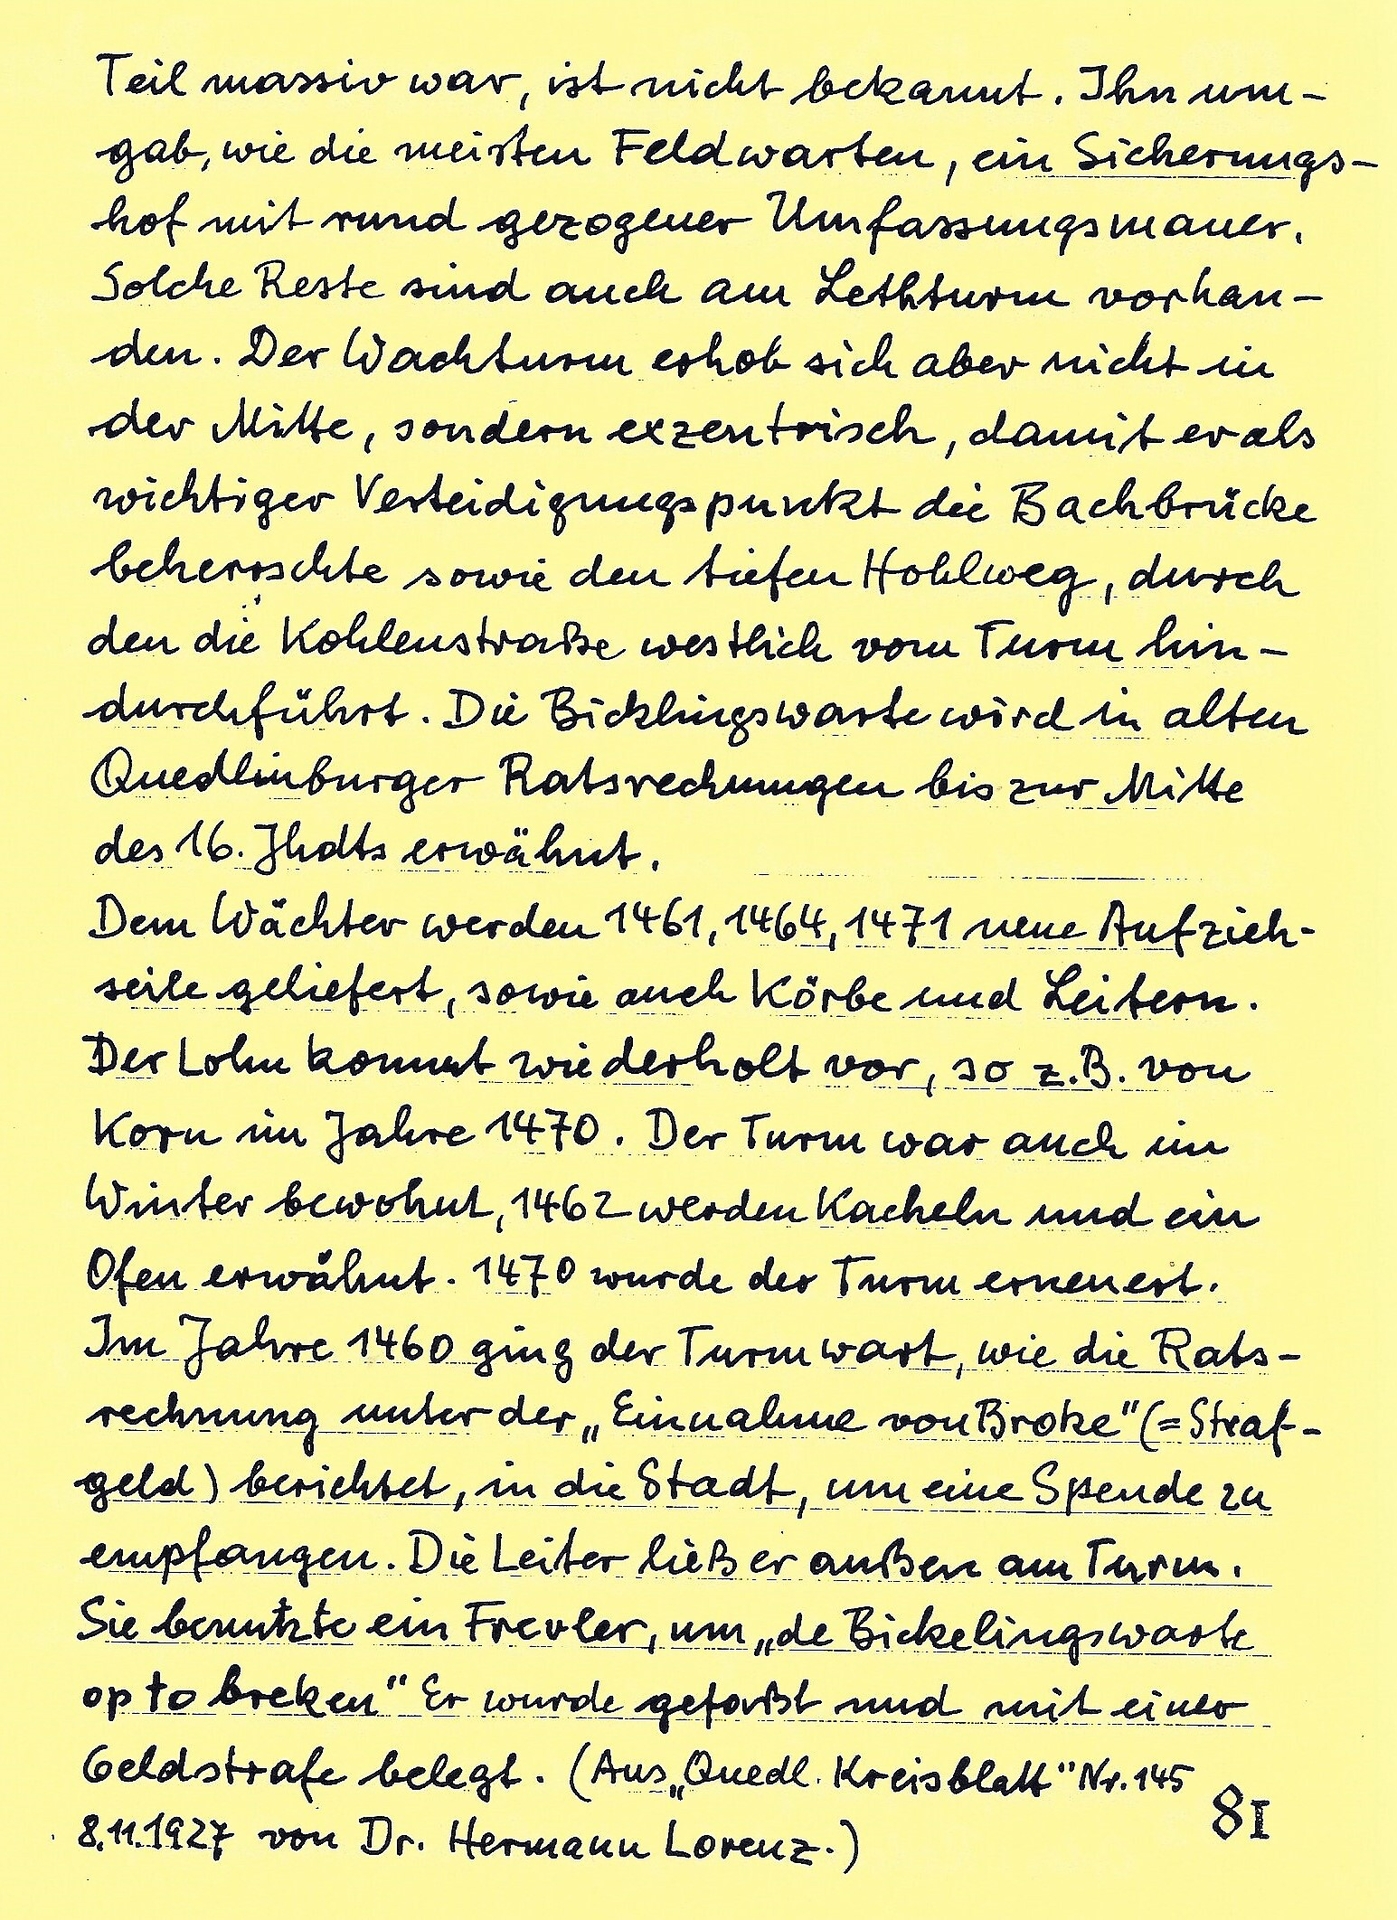 Teil massiv war, ist nicht bekannt. Ihn um-
gab, wie die meisten Feldwarten, ein Sicherungs-
hof mit rund gezogener Umfassungsmauer.
Solche Reste sind auch am Lethturm vorhan-
den. Der Wachturm erhob sich aber nicht in
der Mitte, sondern exzentrisch, damit er als
wichtiger Verteidigungspunkt die Bachbrücke
beherrschte sowie den tiefen Hohlweg, durch
den die Kohlenstraße westlich vom Turm hin-
durchführt. Die Bicklingswarte wird in alten
Quedlinburger Ratsrechnungen bis zur Mitte
des 16. Jhdts erwähnt.
Dem Wächter werden 1461, 1464, 1471 neue Aufzieh-
seile geliefert, sowie auch Körbe und Leitern.
Der Lohn kommt wiederholt vor, so z.B. von
Korn im Jahre 1470. Der Turm war auch im
Winter bewohnt, 1462 werden Kacheln und ein
Ofen erwähnt. 1470 wurde der Turm erneuert.
Im Jahre 1460 ging der Turmwart, wie die Rats-
rechnung unter der „Einnahme von Broke" (= Straf-
geld) berichtet, in die Stadt, um eine Spende zu
empfangen. Die Leiter ließ er außen am Turm.
Sie benutzte ein Frevler, um „de Bickelingswarte
op to breken" Er wurde gefaßt und mit einer
Geldstrafe belegt. (Aus „Quedl. Kreisblatt" Nr. 145
8.11.1927 von Dr. Hermann Lorenz.)
81